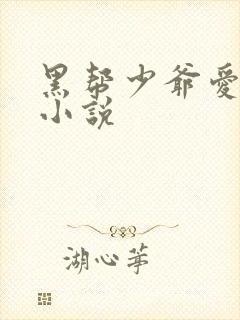 黑帮少爷愛
小説
湖心茅